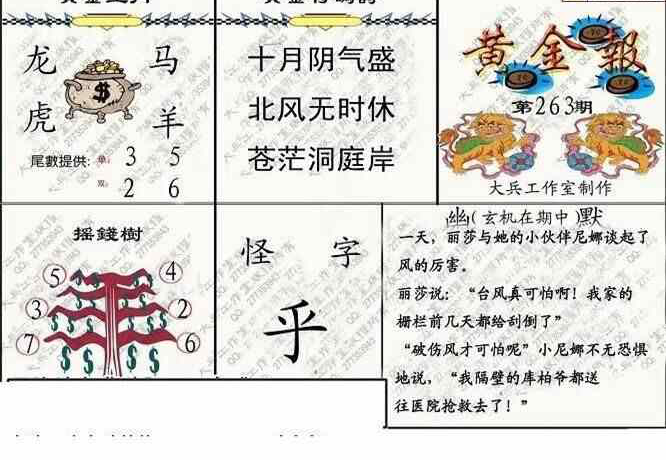 龙 马
虎 羊
尾數提供: 单: 3 5
双: 2 6
十月阴气盛
北风无时休
苍茫洞庭岸
黄金報
第263期
大兵工作室制作
摇錢樹
5 4
3 2
7 6
怪 字
乎
幽(玄机在期中)默
一天，丽莎与她的小伙伴尼娜谈起了
风的厉害。
丽莎说：“台风真可怕啊！我家的
栅栏前几天都给刮倒了”
“破伤风才可怕呢”小尼娜不无恐惧
地说，“我隔壁的库柏爷都送
往医院抢救去了！”